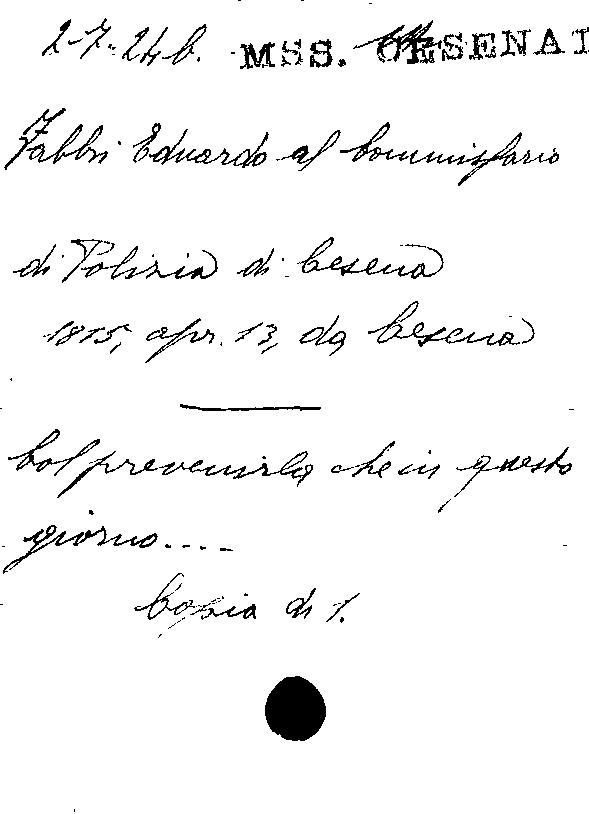 2-7-24b. MSS. CESENATI
Fabbri Eduardo al Commissario
di Polizia di Cesena
1815, apr. 13, da Cesena
Col prevenirla che in questo
giorno....
Copia di 1.